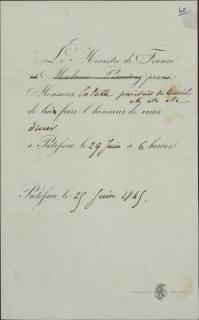 Le Ministre de France
et Madame Piscatory prient
Monsieur Colette président du Conseil
etc etc etc
de lui faire l'honneur de venir
dîner
à Patissia le 29 Juin à 6 heures
Patissia, le 25 Juin 1845.